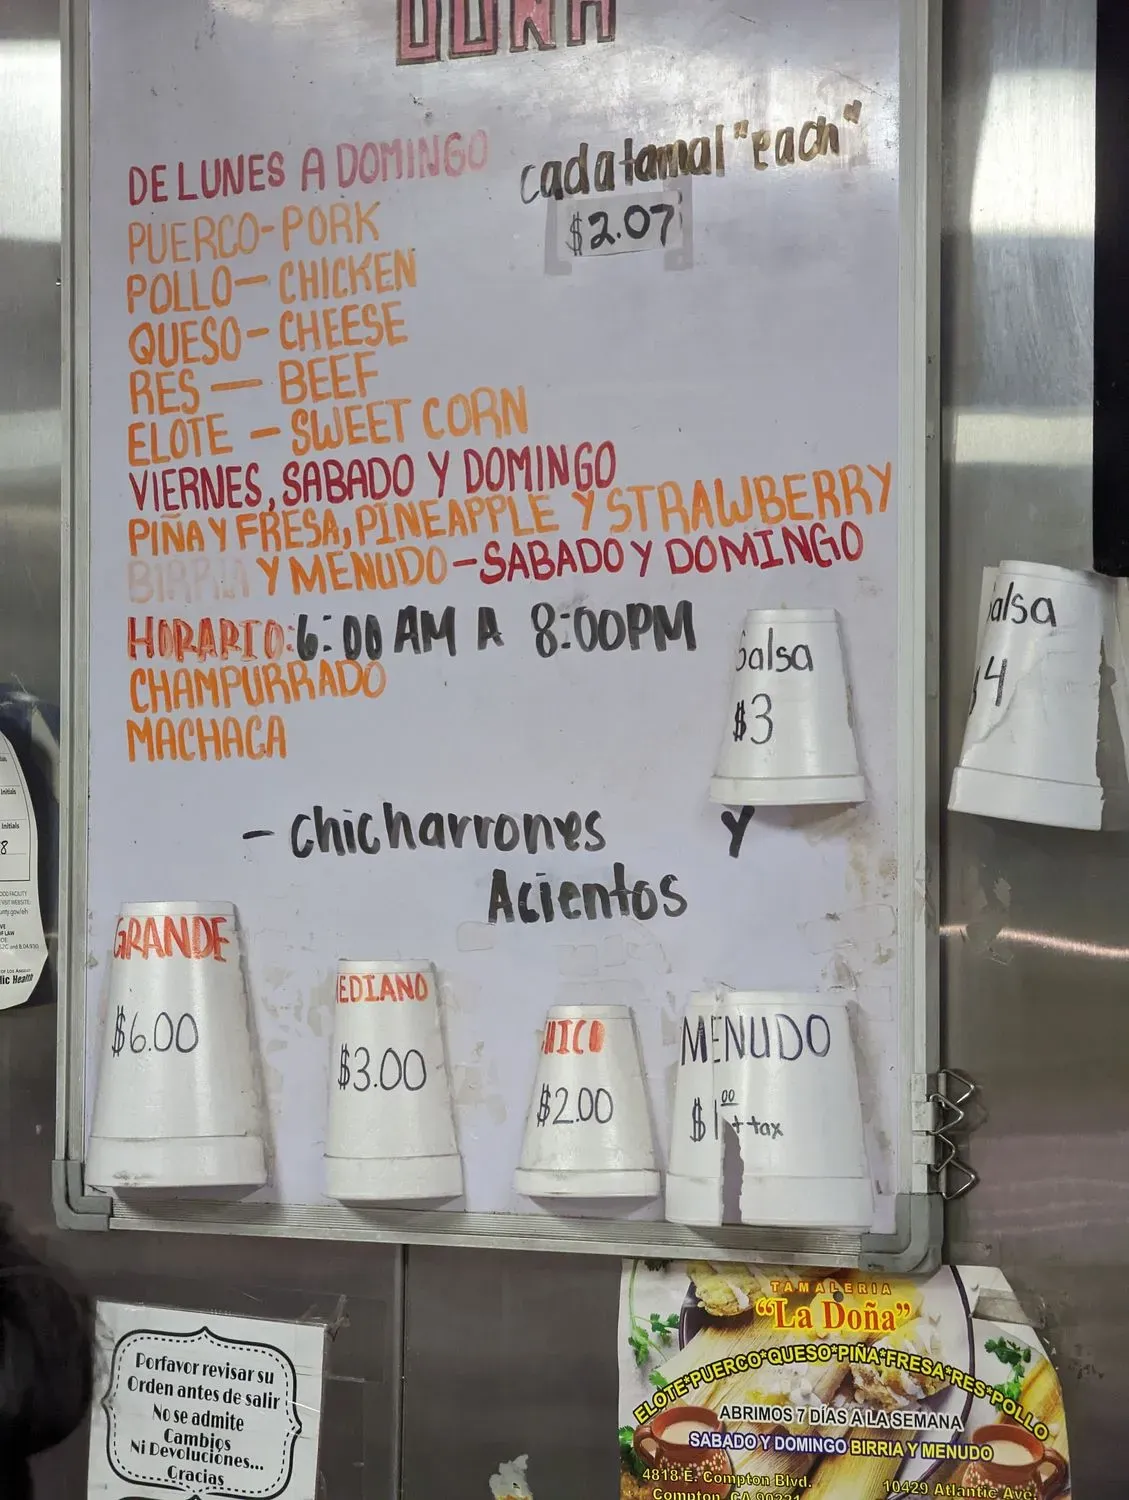 DOÑA
DE LUNES A DOMINGO
cada tamal "each"
$2.07
PUERCO-PORK
POLLO-CHICKEN
QUESO-CHEESE
RES-BEEF
ELOTE-SWEET CORN
VIERNES, SABADO Y DOMINGO
PIÑA Y FRESA, PINEAPPLE Y STRAWBERRY
BIRRIA Y MENUDO-SABADO Y DOMINGO
HORARIO: 6:00 AM A 8:00PM
CHAMPURRADO
MACHACA
Salsa
$3
alsa
$4
- chicharrones Y
Acientos
GRANDE
$6.00
EDIANO
$3.00
HICO
$2.00
MENUDO
+ tax
Initials
Initials
8
Porfavor revisar su
Orden antes de salir
No se admite
Cambios
Ni Devoluciones...
Gracias
TAMALERIA
"La Doña"
ELOTE*PUERCO*QUESO*PIÑA*FRESA*RES*POLLO
ABRIMOS 7 DÍAS A LA SEMANA
SABADO Y DOMINGO BIRRIA Y MENUDO
4818 E. Compton Blvd.
Compton, CA 90221
10429 Atlantic Ave.